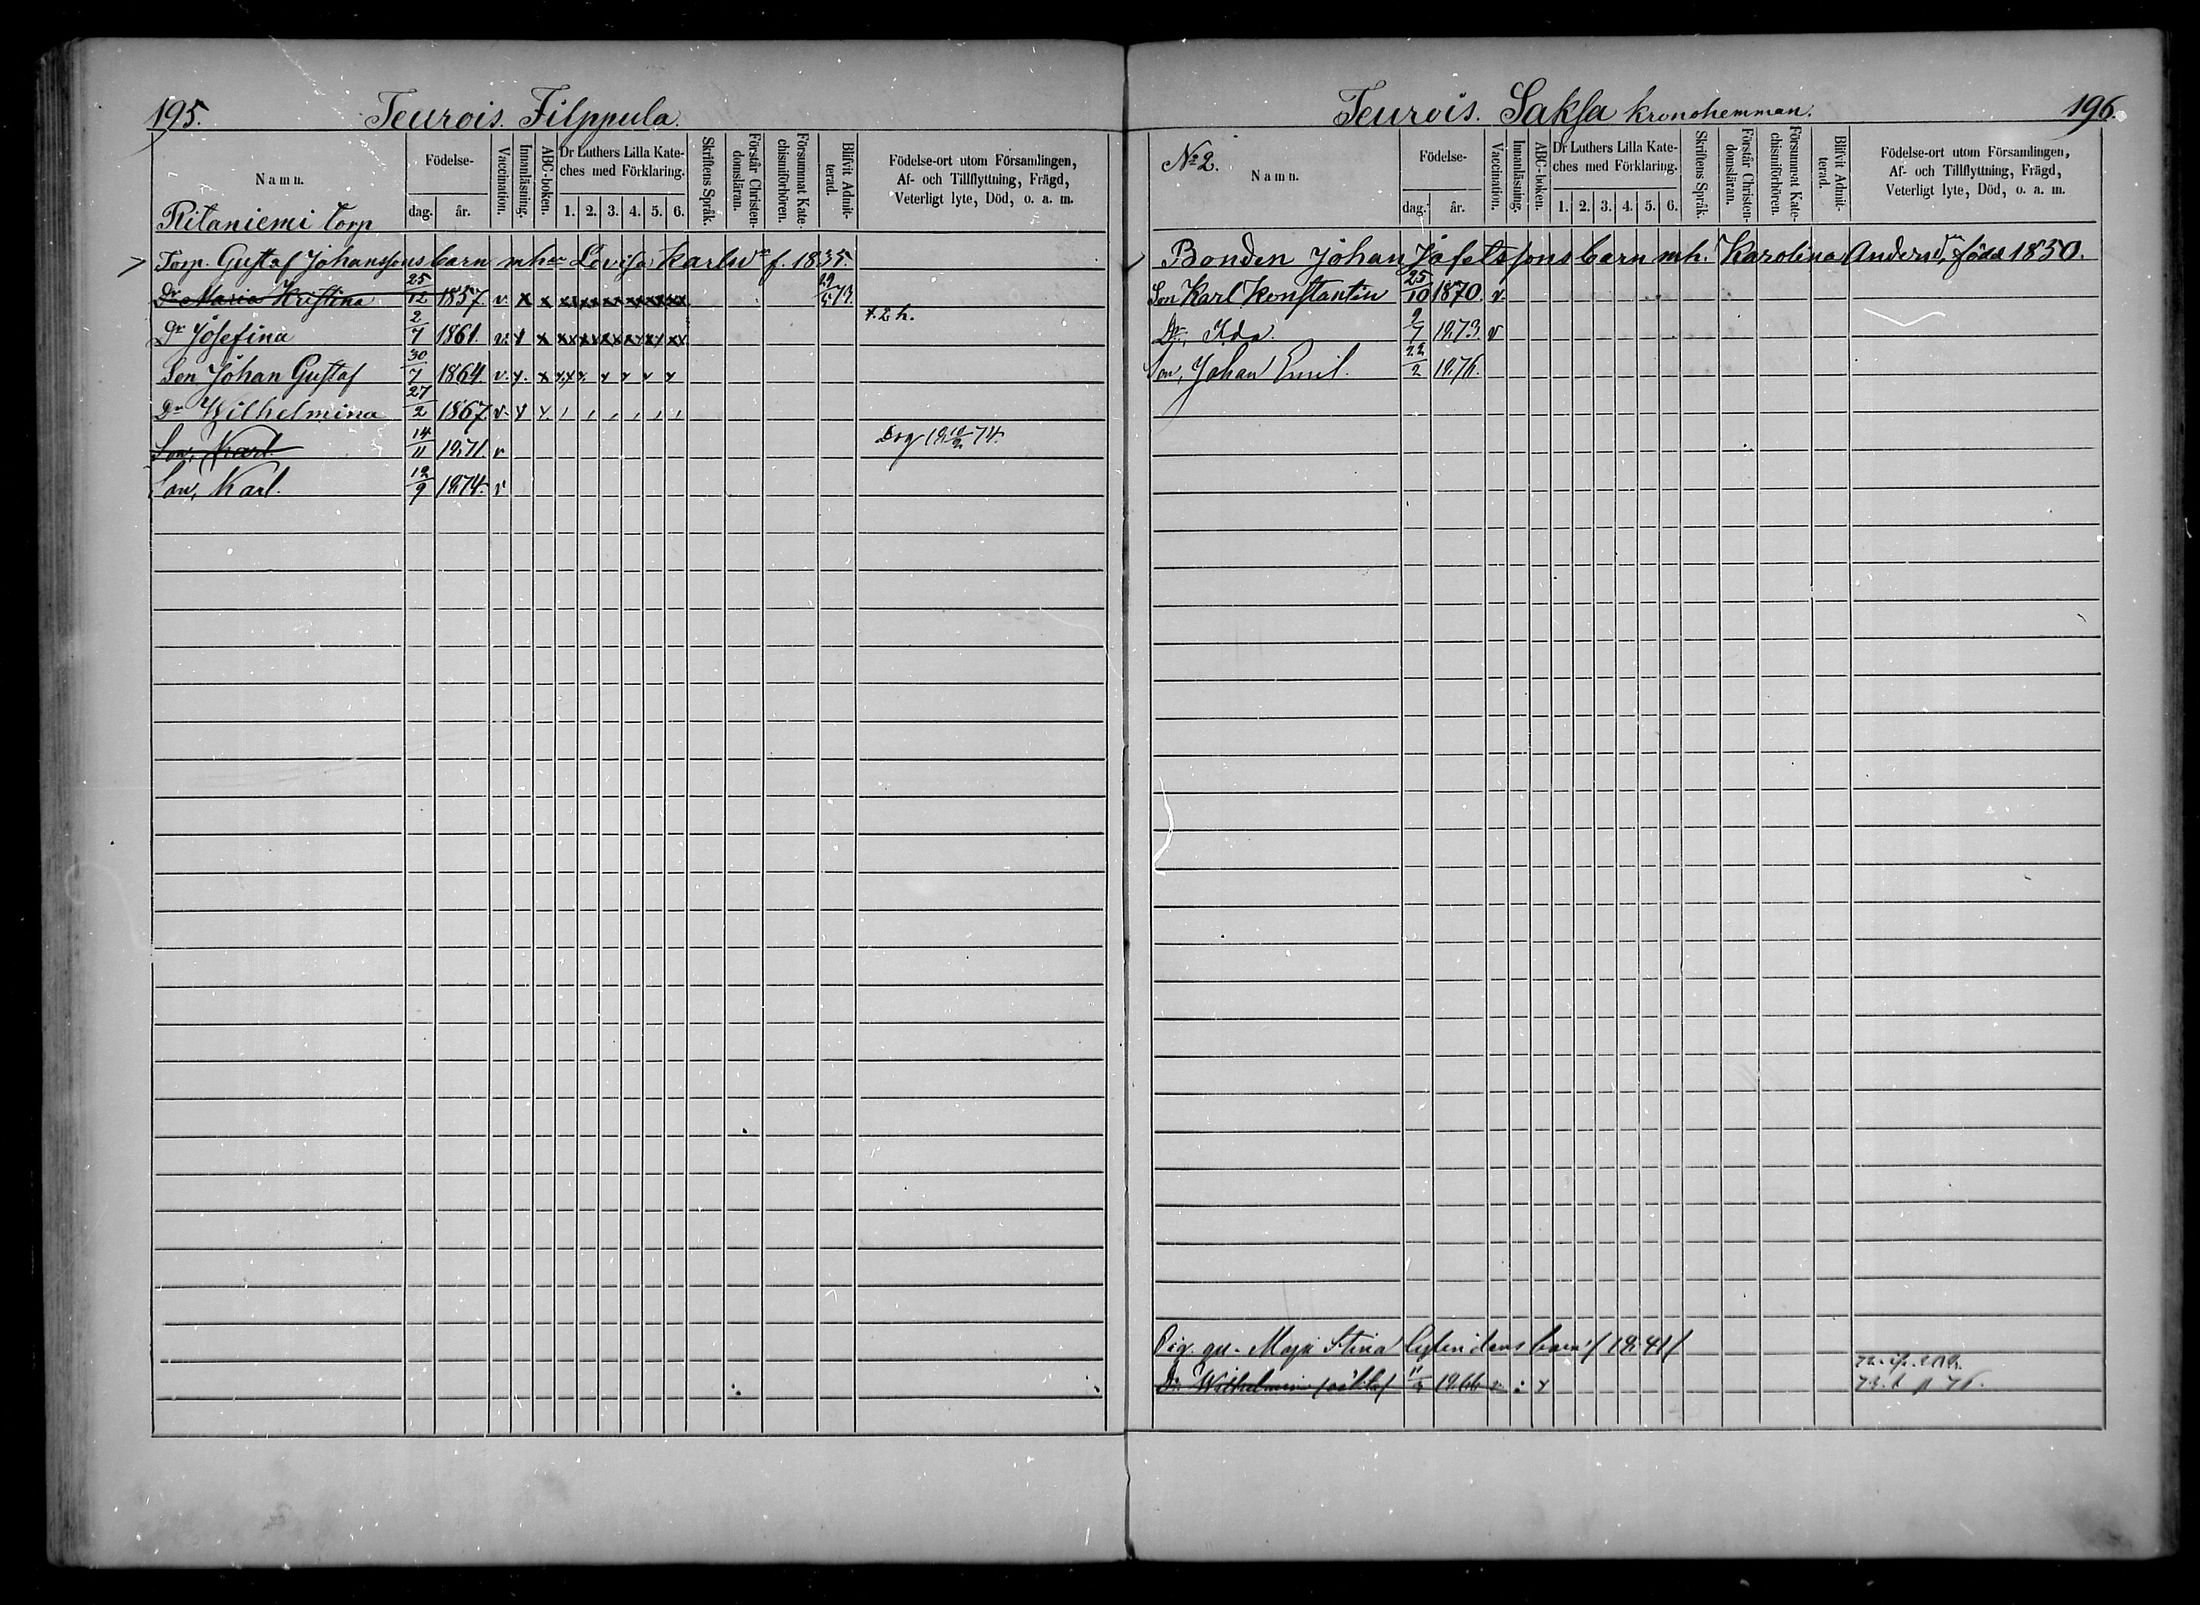 195.
Teurois. Filppula.
Namn.
Födelse-
dag.
år.
Vaccination.
Innanläsning.
ABC-boken.
Dr Luthers Lilla Kate-
ches med Förklaring.
1. 2. 3. 4. 5. 6.
Skriftens Språk.
Förstår Christen-
domsläran.
Försummat Kate-
chismiförhören.
Blifvit Admit-
terad.
Födelse-ort utom Församlingen,
Af- och Tillflyttning, Frägd,
Veterligt lyte, Död, o. a. m.
Ritaniemi torp
Torp. Gustaf Johanssons barn mh Lovisa Karlsd f. 1835.
Dr Maria Kristina 25/12 1857. v. x x xx xx xx xx xx xx 73.
t. 2 h.
Dr Josefina 2/7 1861. v. x x xx xx xx xx xx xx
Son Johan Gustaf 30/7 1864. v. x. x x x x x x x
Dr Wilhelmina 27/2 1867. v. x x
Son, Karl 14/11 1871 v
Son, Karl. 12/9 1874. v
196.
Teurois. Saksa kronohemman.
No 2.
Namn.
Födelse-
dag.
år.
Vaccination.
Innanläsning.
ABC-boken.
Dr Luthers Lilla Kate-
ches med Förklaring.
1. 2. 3. 4. 5. 6.
Skriftens Språk.
Förstår Christen-
domsläran.
Försummat Kate-
chismiförhören.
Blifvit Admit-
terad.
Födelse-ort utom Församlingen,
Af- och Tillflyttning, Frägd,
Veterligt lyte, Död, o. a. m.
Bonden Johan Jafetssons barn mh. Karolina Andersdr född 1850.
Son Karl Konstantin 25/10 1870. v.
Dr, Ida. 1873. v
Son, Johan Emil. 22/2 1876.
Maja Stina barn
Dr Wilhelmina 1866